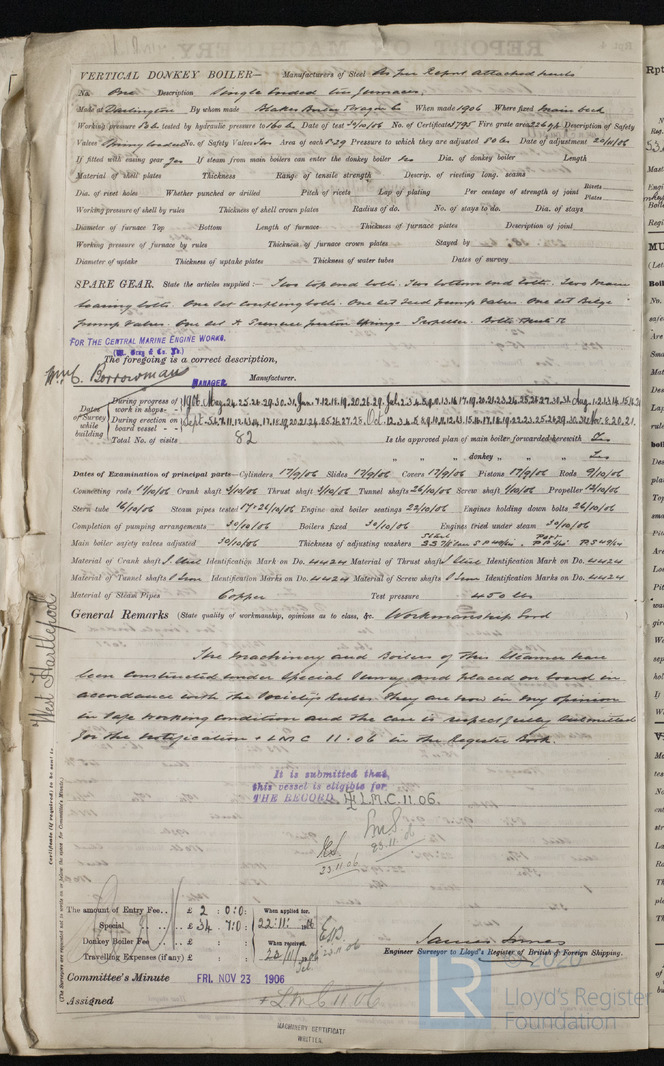 VERTICAL DONKEY BOILER— Manufacturers of Steel As per Report attached hereto
No. One Description Single ended two furnaces
Made at Darlington By whom made Blakes Boiler When made 1906 Where fixed main deck
Working pressure 80 lb tested by hydraulic pressure to 160 lb Date of test 30/10/06 No. of Certificate 3795 Fire grate area Description of Safety
Valves Spring loaded No. of Safety Valves Two Area of each 8.29 Pressure to which they are adjusted 80 lbs Date of adjustment 20/11/06
If fitted with easing gear Yes If steam from main boilers can enter the donkey boiler Dia. of donkey boiler Length
Material of shell plates Thickness Range of tensile strength Descrip. of riveting long. seams
Dia. of rivet holes Whether punched or drilled Pitch of rivets Lap of plating Per centage of strength of joint Rivets Plates
Working pressure of shell by rules Thickness of shell crown plates Radius of do. No. of stays to do. Dia. of stays
Diameter of furnace Top Bottom Length of furnace Thickness of furnace plates Description of joint
Working pressure of furnace by rules Thickness of furnace crown plates Stayed by
Diameter of uptake Thickness of uptake plates Thickness of water tubes Dates of survey
SPARE GEAR. State the articles supplied:— Two top end bolts. Two bottom end bolts. Two main
bearing bolts. One set coupling bolts. One set feed pump valves. One set Bilge
pump valves. One set Springs. Propeller. Bolts & nuts &c
FOR THE CENTRAL MARINE ENGINE WORKS.
(W. Gray & Co. Ld.)
The foregoing is a correct description,
Wm C. Borrowman MANAGER Manufacturer.
Dates of Survey while building
During progress of work in shops - - 1906
During erection on board vessel - -
Total No. of visits 82 Is the approved plan of main boiler forwarded herewith Yes
" " " donkey " " " Yes
Dates of Examination of principal parts—Cylinders 17/9/06 Slides 17/9/06 Covers 17/9/06 Pistons 17/9/06 Rods 9/10/06
Connecting rods 17/10/06 Crank shaft Thrust shaft Tunnel shafts 26/10/06 Screw shaft Propeller 12/10/06
Stern tube 16/10/06 Steam pipes tested 17+26/10/06 Engine and boiler seatings 22/10/06 Engines holding down bolts 26/10/06
Completion of pumping arrangements 30/10/06 Boilers fixed 30/10/06 Engines tried under steam 30/10/06
Main boiler safety valves adjusted 30/10/06 Thickness of adjusting washers
Material of Crank shaft I Steel Identification Mark on Do. 4424 Material of Thrust shaft I Steel Identification Mark on Do. 4424
Material of Tunnel shafts I Iron Identification Marks on Do. 4424 Material of Screw shafts I Iron Identification Marks on Do. 4424
Material of Steam Pipes Copper Test pressure 450 lbs
General Remarks (State quality of workmanship, opinions as to class, &c. Workmanship Good )
The machinery and Boilers of this Steamer have
been constructed under Special Survey and placed on board in
accordance with the Society's Rules. They are now in my opinion
in safe working condition and the case is respectfully submitted
for the notification + LMC 11.06 in the Register Book.
West Hartlepool
Certificate (if required) to be sent to
(The Surveyors are requested not to write on or below the space for Committee's Minute.)
It is submitted that
this vessel is eligible for
THE RECORD. + L.M.C. 11.06.
23.11.06
23.11.06
The amount of Entry Fee.. £ 2 : 0 : 0 : When applied for,
Special .. £ 34 : 7 : 0 : 22.11.1906
Donkey Boiler Fee £ : : When received,
Travelling Expenses (if any) £ : :
23.11.06
James Jones
Engineer Surveyor to Lloyd's Register of British & Foreign Shipping.
Committee's Minute FRI. NOV 23 1906
Assigned + LMC 11.06
MACHINERY CERTIFICATE
WRITTEN.
© 2020
LR
Lloyd's Register
Foundation